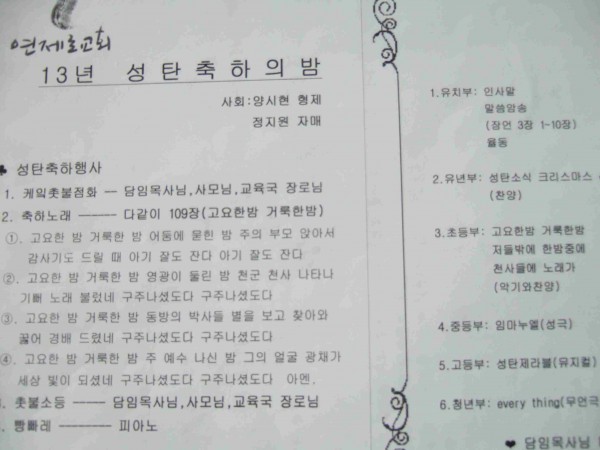 연제로교회
13년 성탄축하의밤
사회:양시현 형제
정지원 자매
♣ 성탄축하행사
1. 케익촛불점화 — 담임목사님,사모님,교육국 장로님
2. 축하노래 ――― 다같이 109장(고요한밤 거룩한밤)
①. 고요한 밤 거룩한 밤 어둠에 묻힌 밤 주의 부모 앉아서
감사기도 드릴 때 아기 잘도 잔다 아기 잘도 잔다
②. 고요한 밤 거룩한 밤 영광이 둘린 밤 천군 천사 나타나
기뻐 노래 불렀네 구주나셨도다 구주나셨도다
③. 고요한 밤 거룩한 밤 동방의 박사들 별을 보고 찾아와
꿇어 경배 드렸네 구주나셨도다 구주나셨도다
④. 고요한 밤 거룩한 밤 주 예수 나신 밤 그의 얼굴 광채가
세상 빛이 되셨네 구주나셨도다 구주나셨도다 아멘.
. 촛불소등 ――― 담임목사님,사모님,교육국 장로님
. 빵빠레 ――― 피아노
1.유치부: 인사말
말씀암송
(잠언 3장 1~10장)
율동
2.유년부: 성탄소식 크리스마스
(찬양)
3.초등부: 고요한밤 거룩한밤
저들밖에 한밤중에
천사들에 노래가
(악기와찬양)
4.중등부: 임마누엘(성극)
5.고등부: 성탄제라블(뮤지컬)
6.청년부: every thing(무언극
♥ 담임목사님